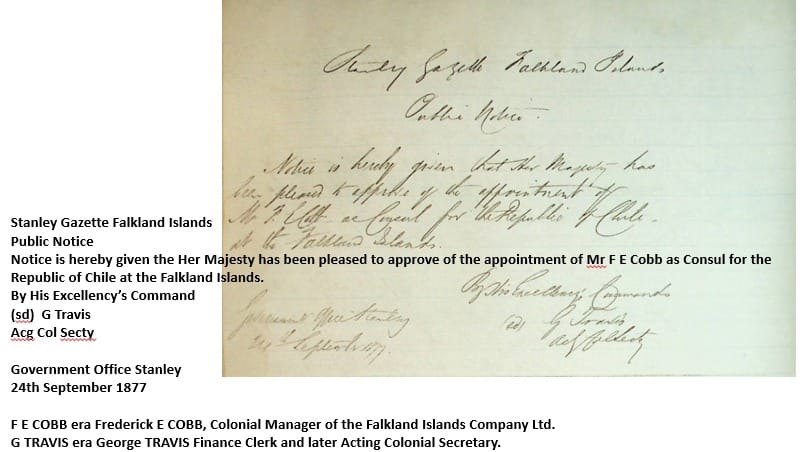 Stanley Gazette Falkland Islands
Public Notice.
Notice is hereby given that Her Majesty has
been pleased to approve of the appointment of
Mr F. E. Cobb as Consul for the Republic of Chile
at the Falkland Islands.
By His Excellency's Command
(sd) G Travis
Acg Col Secty
Government Office Stanley
24th September 1877.
Stanley Gazette Falkland Islands
Public Notice
Notice is hereby given the Her Majesty has been pleased to approve of the appointment of Mr F E Cobb as Consul for the
Republic of Chile at the Falkland Islands.
By His Excellency’s Command
(sd)  G Travis
Acg Col Secty
Government Office Stanley
24th September 1877
F E COBB era Frederick E COBB, Colonial Manager of the Falkland Islands Company Ltd.
G TRAVIS era George TRAVIS Finance Clerk and later Acting Colonial Secretary.